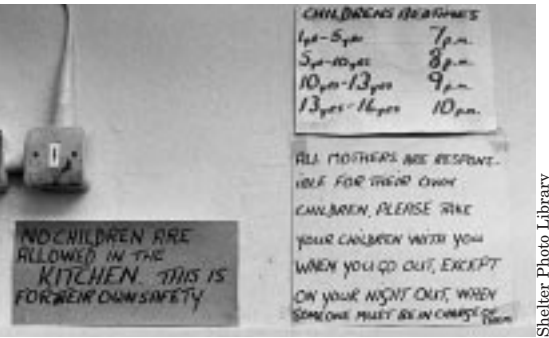 CHILDRENS BEDTIMES
1yr-5yrs 7p.m.
5yr-10yrs 8p.m.
10yrs-13yrs 9p.m.
13yrs-16yrs 10p.m.
ALL MOTHERS ARE RESPONS-
IBLE FOR THEIR OWN
CHILDREN, PLEASE TAKE
YOUR CHILDREN WITH YOU
WHEN YOU GO OUT, EXCEPT
ON YOUR NIGHT OUT, WHEN
SOMEONE MUST BE IN CHARGE OF THEM
NO CHILDREN ARE
ALLOWED IN THE
KITCHEN. THIS IS
FOR THEIR OWN SAFETY
Shelter Photo Library